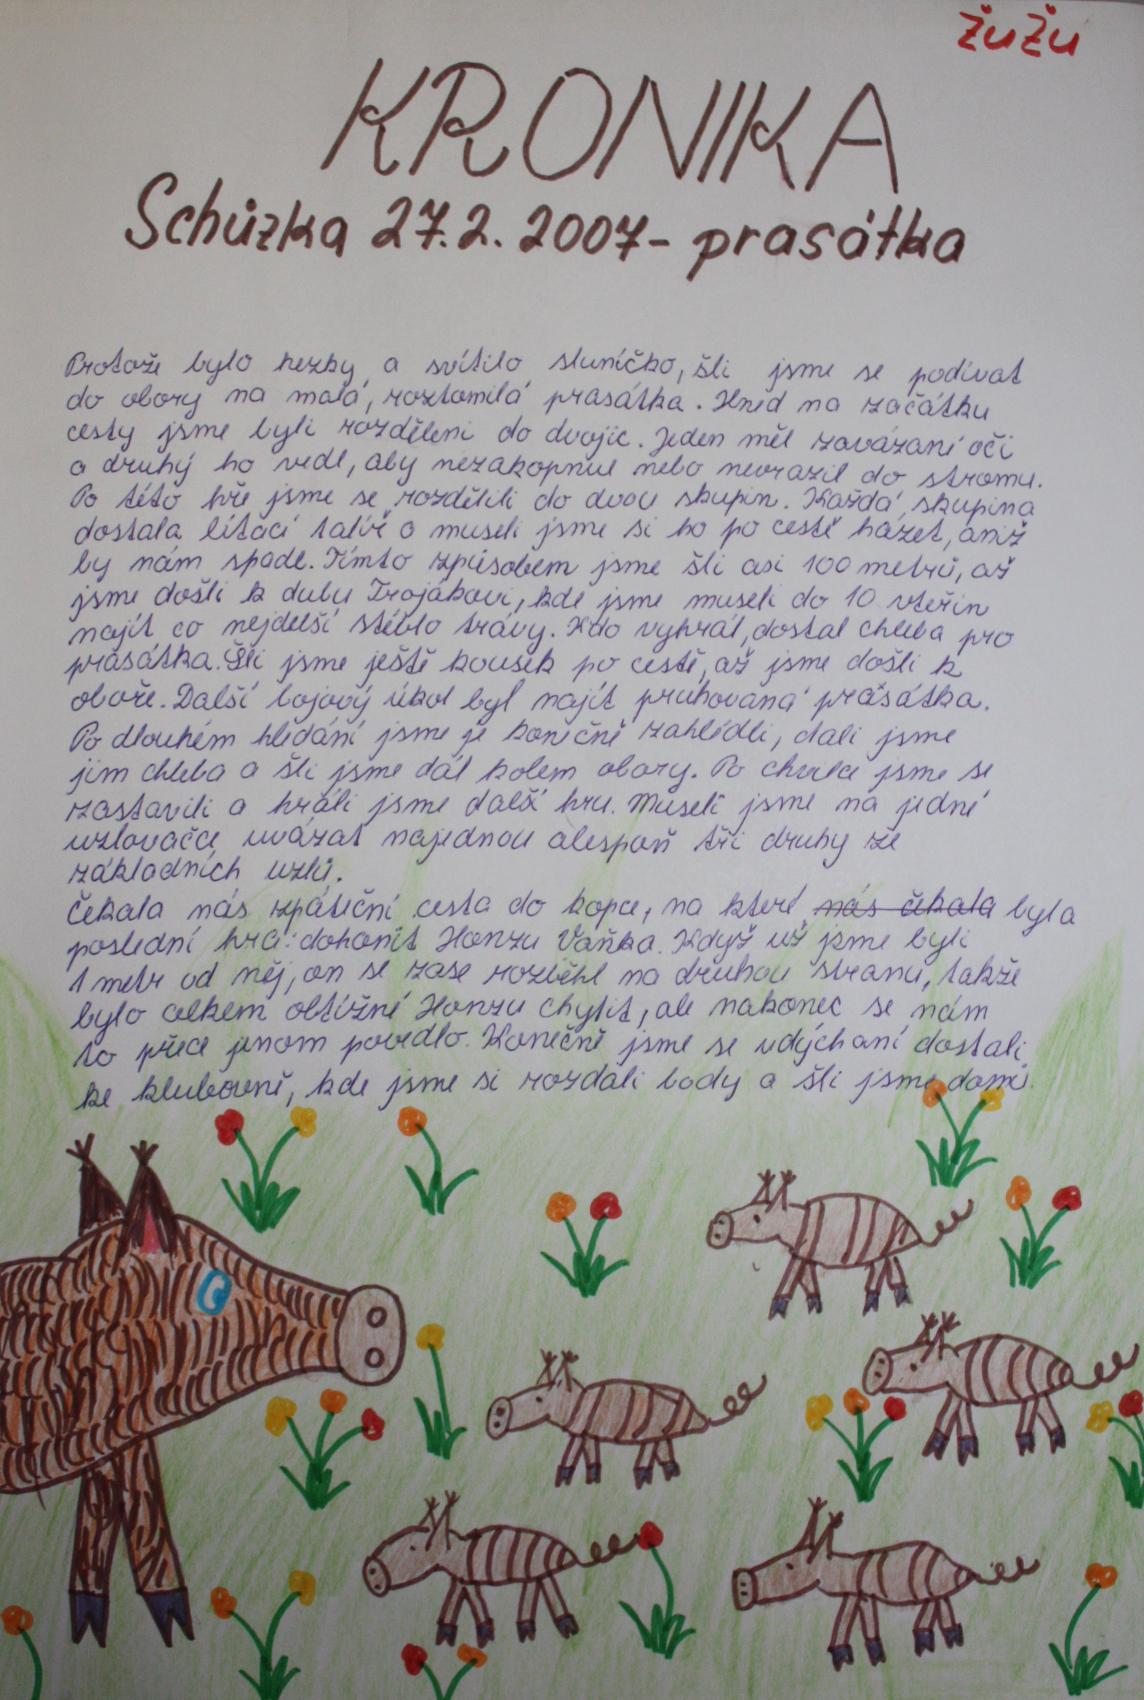 ŽuŽu
KRONIKA
Schůzka 27.2.2007- prasátka
Protože bylo hezky a svítilo sluníčko, šli jsme se podívat
do obory na malá, roztomilá prasátka. Hned na začátku
cesty jsme byli rozděleni do dvojic. Jeden měl zavázané oči
a druhý ho vedl, aby nezakopnul nebo nevrazil do stromu.
Po této hře jsme se rozdělili do dvou skupin. Každá skupina
dostala lítací talíř a museli jsme si ho po cestě házet, aniž
by nám spadl. Tímto způsobem jsme šli asi 100 metrů, až
jsme došli k dubu Trojákovi, kde jsme museli do 10 vteřin
najít co nejdelší stéblo trávy. Kdo vyhrál, dostal chleba pro
prasátka. Šli jsme ještě kousek po cestě, až jsme došli k
oboře. Další bojový úkol byl najít pruhovaná prasátka.
Po dlouhém hledání jsme je konečně zahlédli, dali jsme
jim chleba a šli jsme dál kolem obory. Po chvilce jsme se
zastavili a hráli jsme další hru. Museli jsme na jedné
uzlovačce uvázat najednou alespoň tři druhy ze
základních uzlů.
Čekala nás zpáteční cesta do kopce, na které nás čekala byla
poslední hra: dohonit Honzu Vaňka. Když už jsme byli
1 metr od něj, on se zase rozběhl na druhou stranu, takže
bylo celkem obtížné Honzu chytit, ale nakonec se nám
to přece jenom povedlo. Konečně jsme se udýchaní dostali
ke klubovně, kde jsme si rozdali body a šli jsme domů.